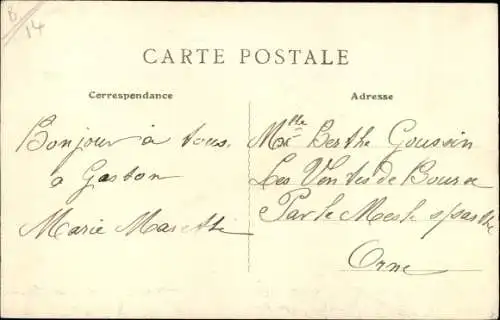 B
14
CARTE POSTALE
Correspondance
Adresse
Bonjour à tous.
à Gaston
Marie
Mlle Berthe Goussin
Les Ventes de Bourse
Par le Mesle s/ Sarthe
Orne